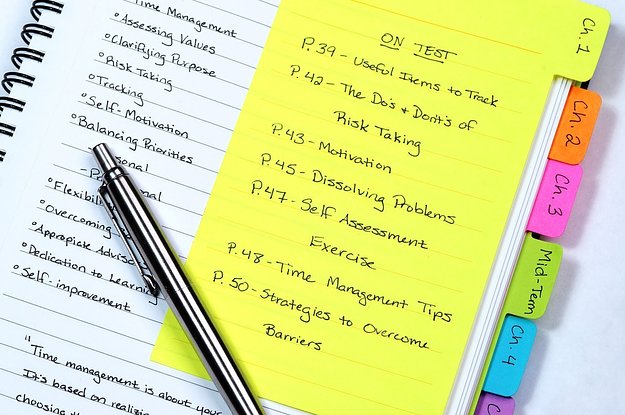 Time Management
°Assessing Values
°Clarifying Purpose
°Risk Taking
°Tracking
°Self-Motivation
°Balancing Priorities
°Overcoming
°Appropiate
°Dedication to Learning
°Self-improvement
"Time management is about your
It's based on
choosing
ON TEST
P.39-Useful Items to Track
P.42-The Do's + Dont's of
Risk Taking
P.43-Motivation
P.45-Dissolving Problems
P.47-Self Assessment
Exercise
P.48-Time Management Tips
P.50-Strategies to Overcome
Barriers
Ch. 1
Ch. 2
Ch. 3
Mid-Term
Ch. 4